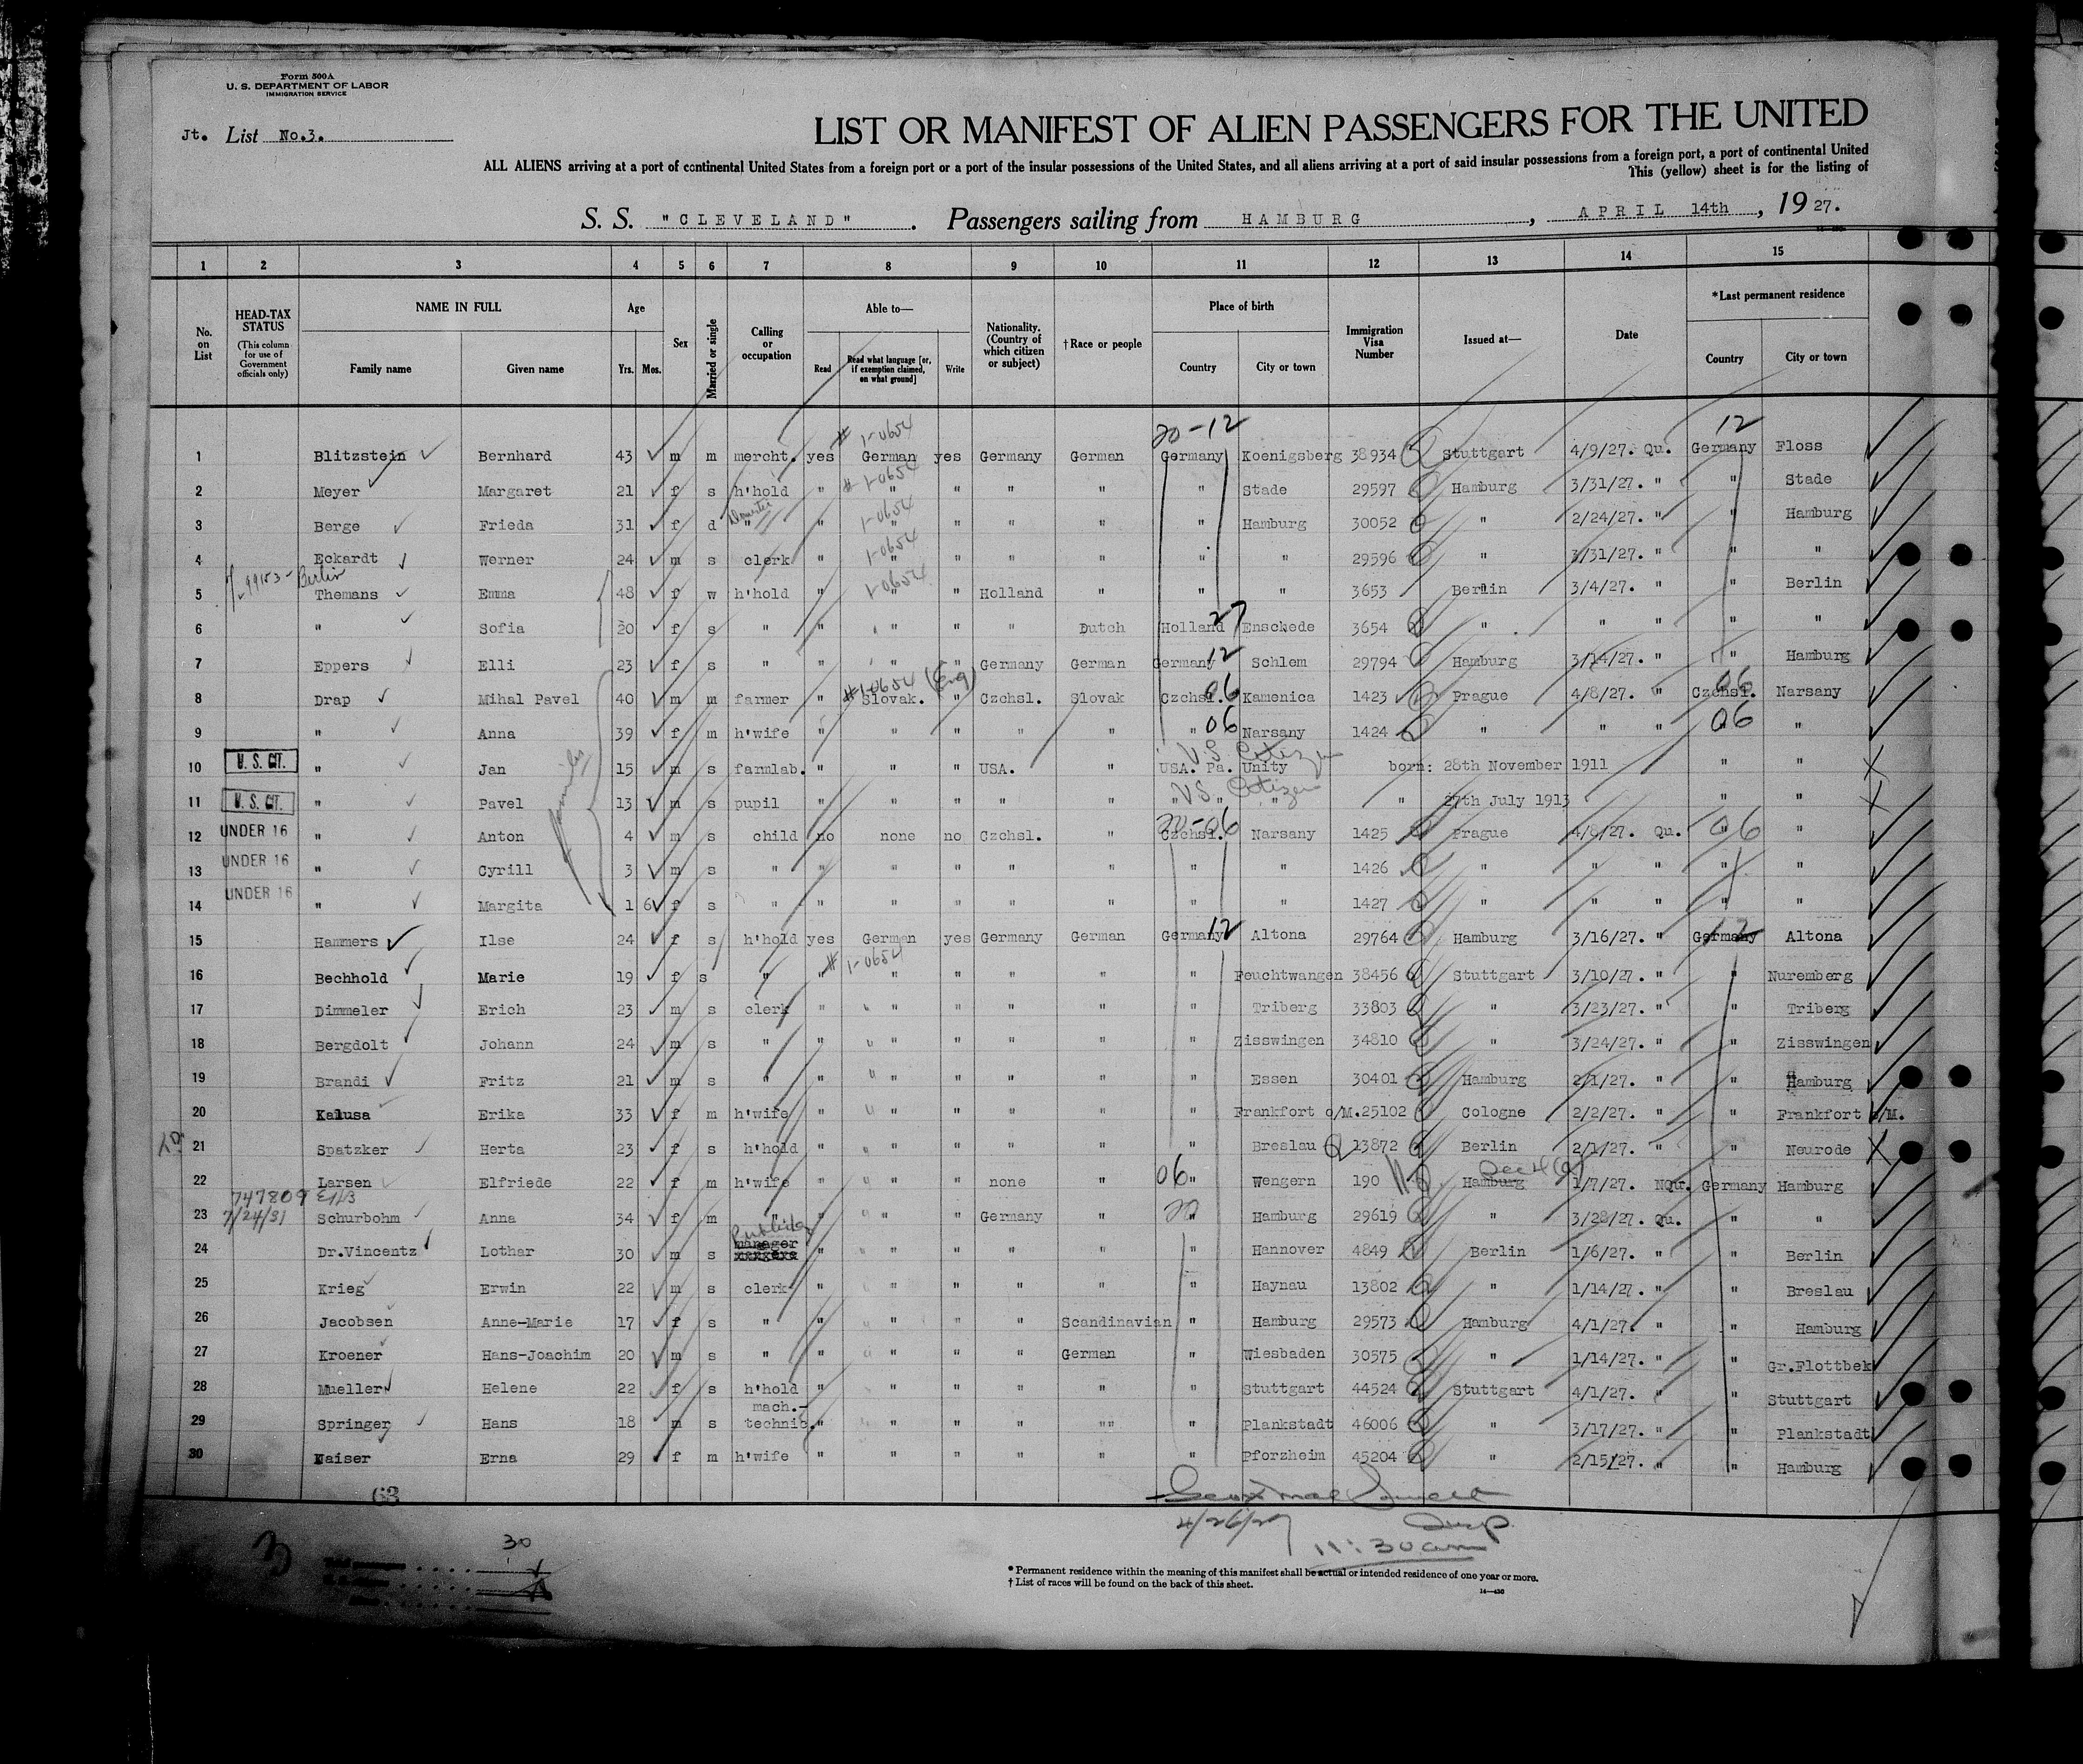 Form 500A
U. S. DEPARTMENT OF LABOR
IMMIGRATION SERVICE
Jt. List No.3.
LIST OR MANIFEST OF ALIEN PASSENGERS FOR THE UNITED
ALL ALIENS arriving at a port of continental United States from a foreign port or a port of the insular possessions of the United States, and all aliens arriving at a port of said insular possessions from a foreign port, a port of continental United
This (yellow) sheet is for the listing of
S. S. "CLEVELAND". Passengers sailing from HAMBURG, APRIL 14th, 1927.
1 2 3 4 5 6 7 8 9 10 11 12 13 14 15
No. on List HEAD-TAX STATUS (This column for use of Government officials only) NAME IN FULL Family name Given name Age Yrs. Mos. Sex Married or single Calling or occupation Able to— Read Read what language [or, if exemption claimed, on what ground] Write Nationality. (Country of which citizen or subject) †Race or people Place of birth Country City or town Immigration Visa Number Issued at— Date *Last permanent residence Country City or town
20-12 12
1 Blitzstein Bernhard 43 m m mercht. yes # 1-0654 German yes Germany German Germany Koenigsberg 38934 Stuttgart 4/9/27. Qu. Germany Floss
2 Meyer Margaret 21 f s h'hold " # 1-0654 " " " " " Stade 29597 Hamburg 3/31/27. " " Stade
3 Berge Frieda 31 f d " " 1-0654 " " " " " Hamburg 30052 " 2/24/27. " " Hamburg
4 Eckardt Werner 24 m s clerk " 1-0654 " " " " " " 29596 " 3/31/27. " " "
99153- Berlin
5 Themans Emma 48 f w h'hold " 1-0654 " " Holland " " " 3653 Berlin 3/4/27. " " Berlin
6 " Sofia 20 f s " " " " " Dutch Holland 27 Enschede 3654 " " " " "
7 Eppers Elli 23 f s " " " " Germany German Germany 12 Schlem 29794 Hamburg 3/14/27. " " Hamburg
8 Drap Mihal Pavel 40 m m farmer " #1-0654 (Eng) Slovak. " Czchsl. Slovak Czchsl. 06 Kamenica 1423 Prague 4/8/27. " Czchsl. 06 Narsany
9 " Anna 39 f m h'wife " " " " " " 06 Narsany 1424 " " " 06 " "
10 U. S. CIT. " Jan 15 m s farmlab. " " " USA. " USA. Pa. Unity US Citizen born: 28th November 1911 " "
11 U. S. CIT. " Pavel 13 m s pupil " " " " " " " " US Citizen " 27th July 1913 " "
12 UNDER 16 " Anton 4 m s child no none no Czchsl. " 20-06 Czchsl. Narsany 1425 Prague 4/8/27. Qu. " 06 "
13 UNDER 16 " Cyrill 3 m s " " " " " " " " 1426 " " " " "
14 UNDER 16 " Margita 1 6 f s " " " " " " " " 1427 " " " " "
15 Hammers Ilse 24 f s h'hold yes German yes Germany German Germany 12 Altona 29764 Hamburg 3/16/27. " Germany 12 Altona
16 Bechhold Marie 19 f s " " # 1-0654 " " " " " Feuchtwangen 38456 Stuttgart 3/10/27. " " Nuremberg
17 Dimmeler Erich 23 m s clerk " " " " " " Triberg 33803 " 3/23/27. " " Triberg
18 Bergdolt Johann 24 m s " " " " " " " Zisswingen 34810 " 3/24/27. " " Zisswingen
19 Brandi Fritz 21 m s " " " " " " " Essen 30401 Hamburg 2/1/27. " " Hamburg
20 Kalusa Erika 33 f m h'wife " " " " " " Frankfort o/M. 25102 Cologne 2/2/27. " " Frankfort o/M.
21 Spatzker Herta 23 f s h'hold " " " " " " Breslau 13872 Berlin 2/1/27. " " Neurode
22 Larsen Elfriede 22 f m h'wife " " " none " 06 " Wengern 190 Hamburg 1/7/27. NQu. Germany Hamburg
747809
7/24/31
23 Schurbohm Anna 34 f m " " " " Germany " 20 " Hamburg 29619 " 3/28/27. Qu. " "
24 Dr.Vincentz Lothar 30 m s manager " " " " " " Hannover 4849 Berlin 1/6/27. " " Berlin
25 Krieg Erwin 22 m s clerk " " " " " " Haynau 13802 " 1/14/27. " " Breslau
26 Jacobsen Anne-Marie 17 f s " " " " " Scandinavian " Hamburg 29573 Hamburg 4/1/27. " " Hamburg
27 Kroener Hans-Joachim 20 m s " " " " " German " Wiesbaden 30575 " 1/14/27. " " Gr.Flottbek
28 Mueller Helene 22 f s h'hold " " " " " " Stuttgart 44524 Stuttgart 4/1/27. " " Stuttgart
29 Springer Hans 18 m s mach.-technic. " " " " "" " Plankstadt 46006 " 3/17/27. " " Plankstadt
30 Naiser Erna 29 f m h'wife " " " " " " Pforzheim 45204 " 2/15/27. " " Hamburg
63
4/26/27
11:30am
30
* Permanent residence within the meaning of this manifest shall be actual or intended residence of one year or more.
† List of races will be found on the back of this sheet.
14—430